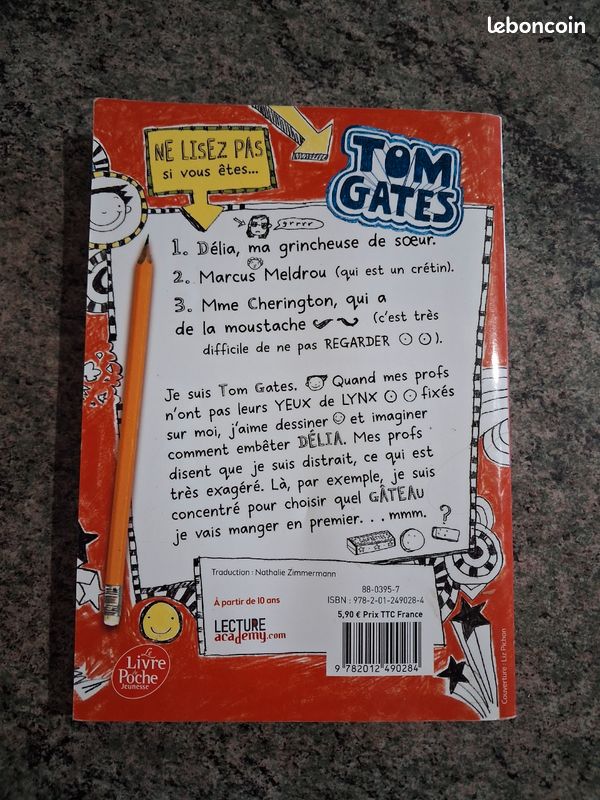 leboncoin
NE LISEZ PAS
si vous êtes...
TOM
GATES
grrrr
1. Délia, ma grincheuse de sœur.
2. Marcus Meldrou (qui est un crétin).
3. Mme Cherington, qui a
de la moustache (c'est très
difficile de ne pas REGARDER ).
Je suis Tom Gates. Quand mes profs
n'ont pas leurs YEUX de LYNX fixés
sur moi, j'aime dessiner et imaginer
comment embêter DÉLIA. Mes profs
disent que je suis distrait, ce qui est
très exagéré. Là, par exemple, je suis
concentré pour choisir quel GÂTEAU
je vais manger en premier... mmm.
?
Traduction : Nathalie Zimmermann
À partir de 10 ans
LECTURE
academy.com
88-0395-7
ISBN : 978-2-01-249028-4
5,90 € Prix TTC France
9 782012 490284
Le
Livre
de
Poche
Jeunesse
Couverture : Liz Pichon